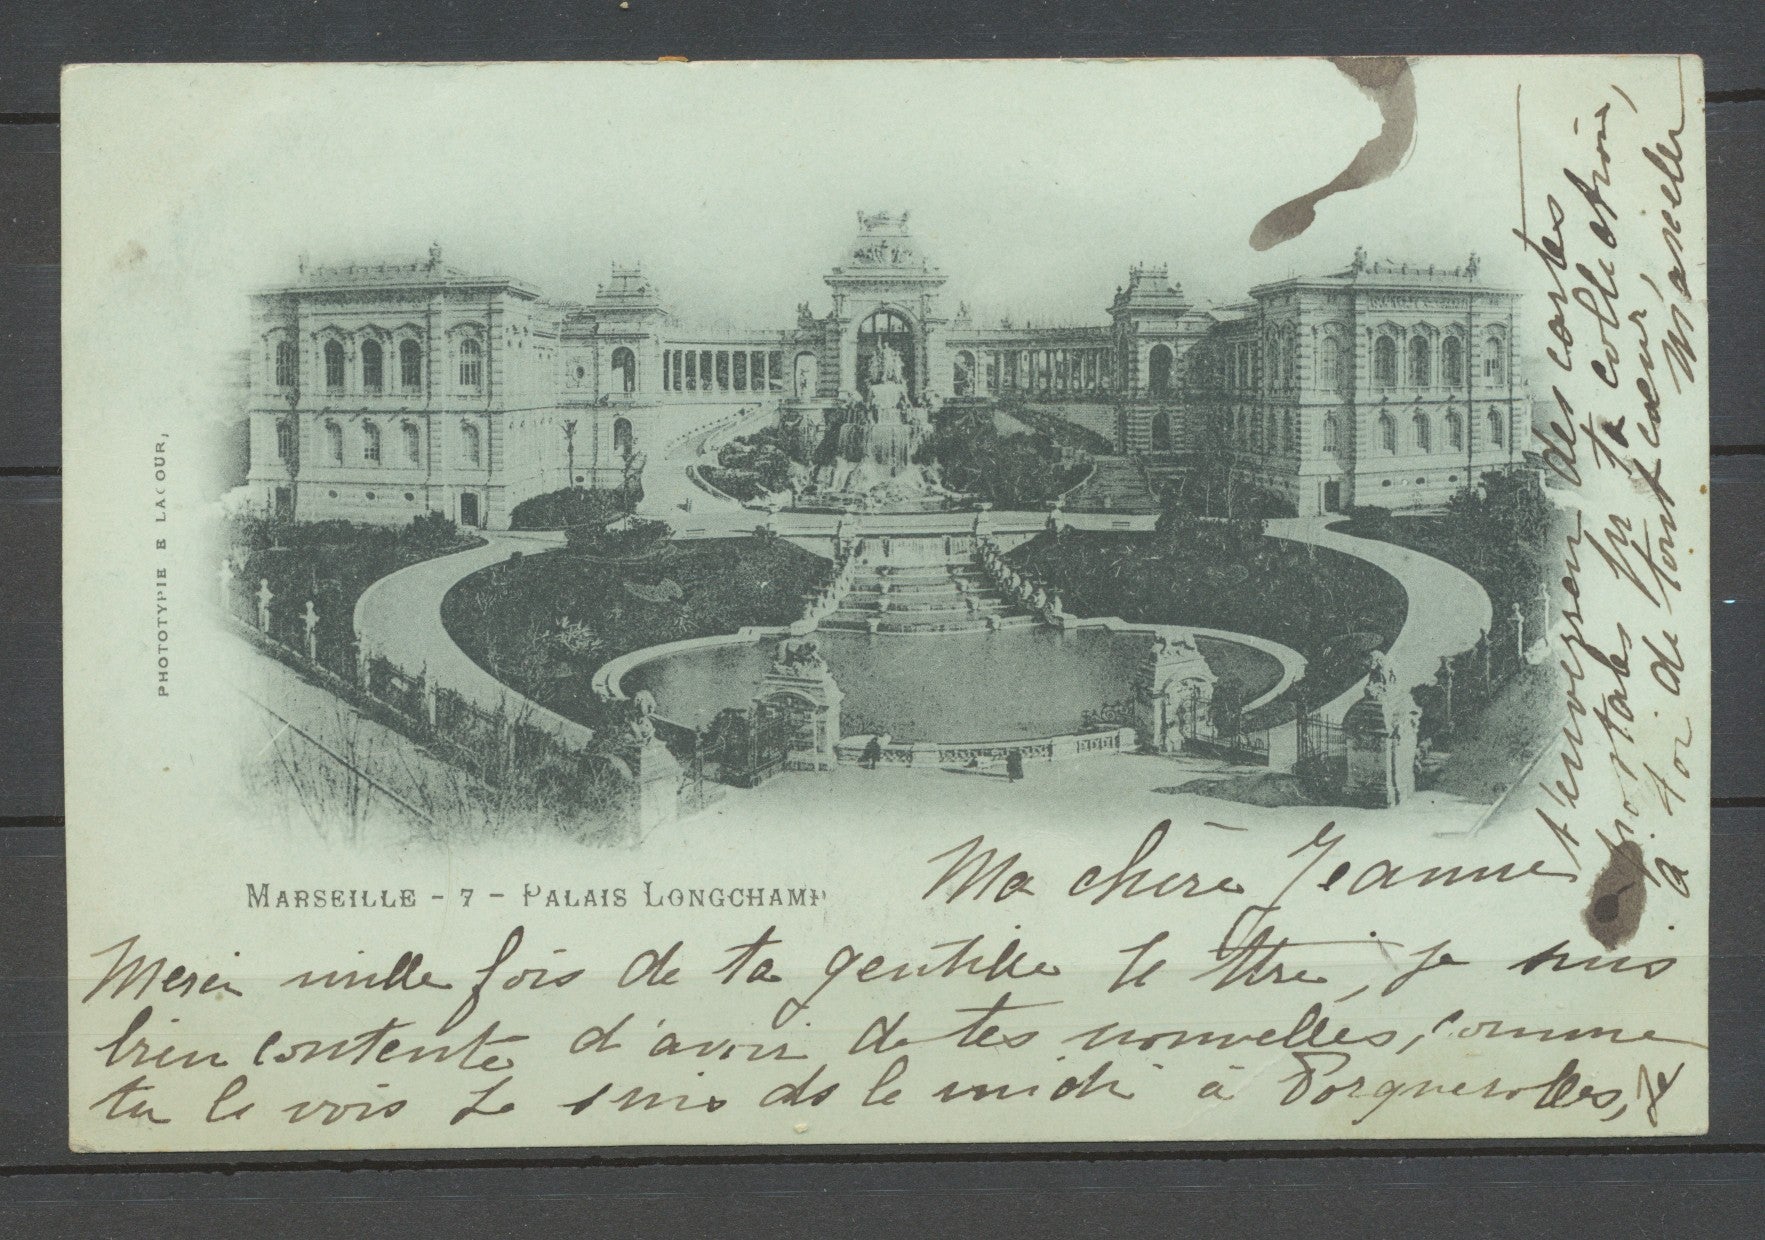 PHOTOTYPIE E LACOUR,
MARSEILLE - 7 - PALAIS LONGCHAMP
Ma chère Jeanne
Merci mille fois de ta gentille lettre, je suis
bien contente d'avoir de tes nouvelles, comme
tu le vois je suis ds le midi à Porquerolles, je
t'enverrai des cartes
postales pr ta collection,
à toi de tout cœur,